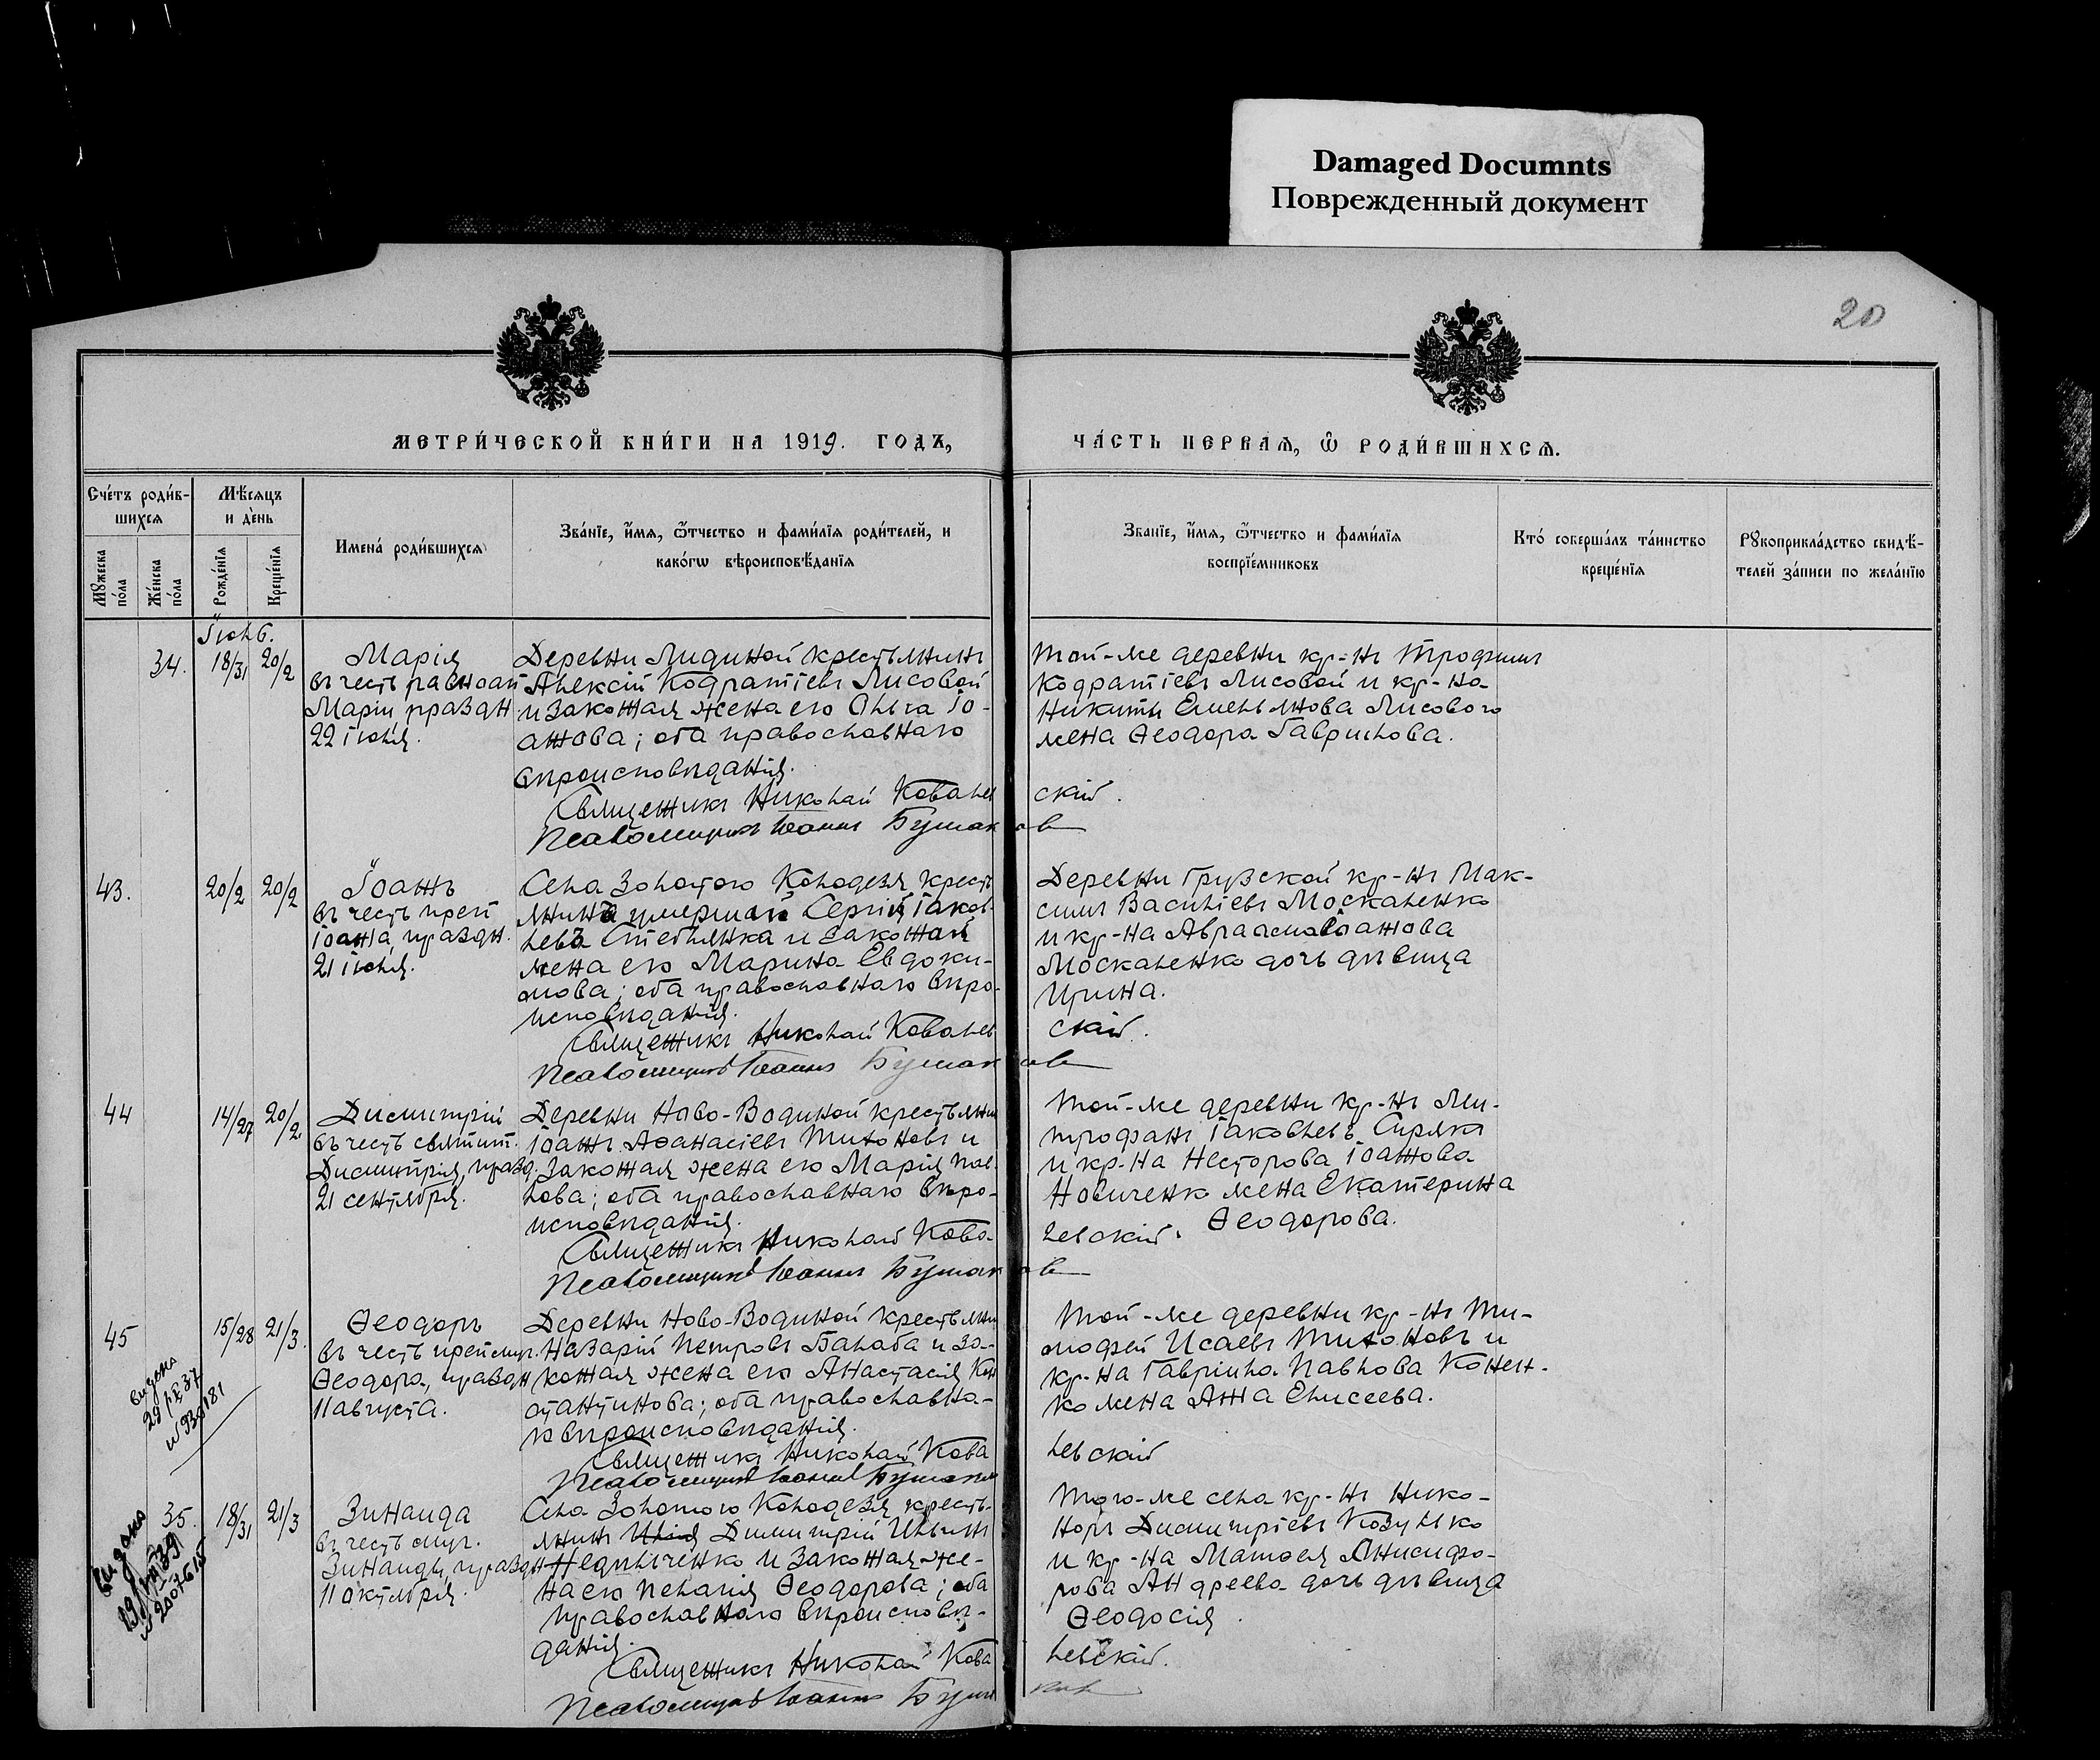 Damaged Documnts
Поврежденный документ
20
МЕТРИ́ЧЕСКОЙ КНИ́ГИ НА 1919. ГОДЪ,
ЧА́СТЬ ПЕРВАѦ, Ѽ РОДИ́ВШИХСѦ.
Сче́тъ роди́в-
шихсѧ
Мѣ́сѧцъ
и де́нь
Мꙋжеска
по́ла
Же́нска
по́ла
Рожде́нїѧ
Креще́нїѧ
Имена́ роди́вшихсѧ
Зва́нїе, и́мѧ, ѻ́тчество и фами́лїѧ роди́телей, и
како́гѡ вѣроисповѣ́данїѧ
Зва́нїе, и́мѧ, ѻ́тчество и фами́лїѧ
воспрїе́мниковъ
Кто́ соверша́лъ та́инство
креще́нїѧ
Рꙋкоприкла́дство свидѣ́-
телей за́писи по жела́нїю
34.
18/31
20/2
Марія
въ честь равноап
Маріи праздн.
22 іюля.
Деревни Лидиной крестьянинъ
Алексій Кодратіевъ Лисовой
и законная жена его Ольга Іо-
аннова; оба православнаго
вѣроисповѣданія.
Священникъ Николай Ковалев
скій.
Псаломщикъ Іоаннъ Бушак
ов
Той-же деревни кр-нъ Трофимъ
Кодратіевъ Лисовой и кр-на
Никиты Емельянова Лисового
жена Ѳеодора Гаврилова.
43.
20/2
20/2
Іоаннъ
въ честь преп
Іоанна, праздн.
21 іюля.
Села Золотого Колодезя, кресть
янина умершаго Сергій Іаков
лева Стеблянка и законная
жена его Марина Евдоки-
мова; оба православнаго вѣро-
исповѣданія.
Священникъ Николай Ковалев
скій.
Псаломщикъ Іоаннъ Бушак
ов
Деревни Грузской кр-нъ Мак-
симъ Васильевъ Москаленко
и кр-на Авраама Іоаннова
Москаленко дочь дѣвица
Ирина.
44
14/27
20/2
Димитрій
въ честь святит.
Димитрія, празд.
21 сентября.
Деревни Ново-Водиной крестьянин
Іоаннъ Аѳанасіевъ Тихоновъ и
законная жена его Марія Пав
лова; оба православнаго вѣро-
исповѣданія.
Священникъ Николай Кова-
левскій.
Псаломщикъ Іоаннъ Бушак
ов
Той-же деревни кр-нъ Ми-
трофанъ Іаковлевъ Сиряка
и кр-на Несторова Іоаннова
Новиченко жена Екатерина
Ѳеодорова.
45
15/28
21/3.
Ѳеодоръ
въ честь преп муч.
Ѳеодора, праздн
11 августа.
Деревни Ново-Водиной крестьянин
Назарій Петровъ Балаба и за-
конная жена его Анастасія Кон
стантинова; оба православна-
го вѣроисповѣданія.
Священникъ Николай Кова
левскій
Псаломщикъ Іоаннъ Бушаков
Той-же деревни кр-нъ Ти-
мофей Исаевъ Тихоновъ и
кр-на Гавріила Павлова Конен-
ко жена Анна Елисеева.
35.
18/31
21/3
Зинаида
въ честь муч.
Зинаиды, праздн
11 октября.
Села Золотого Колодезя, кресть-
янинъ Димитрій Ильинъ
и законная же-
на его Пелагія Ѳеодорова; оба
православнаго вѣроисповѣ-
данія.
Священникъ Николай Кова
левскій.
Псаломщикъ Іоаннъ Буша
ков
Того-же села кр-нъ Нико-
норъ Димитріевъ Козулько
и кр-на Матѳея Анисифо-
рова Андреева дочь дѣвица
Ѳеодосія.